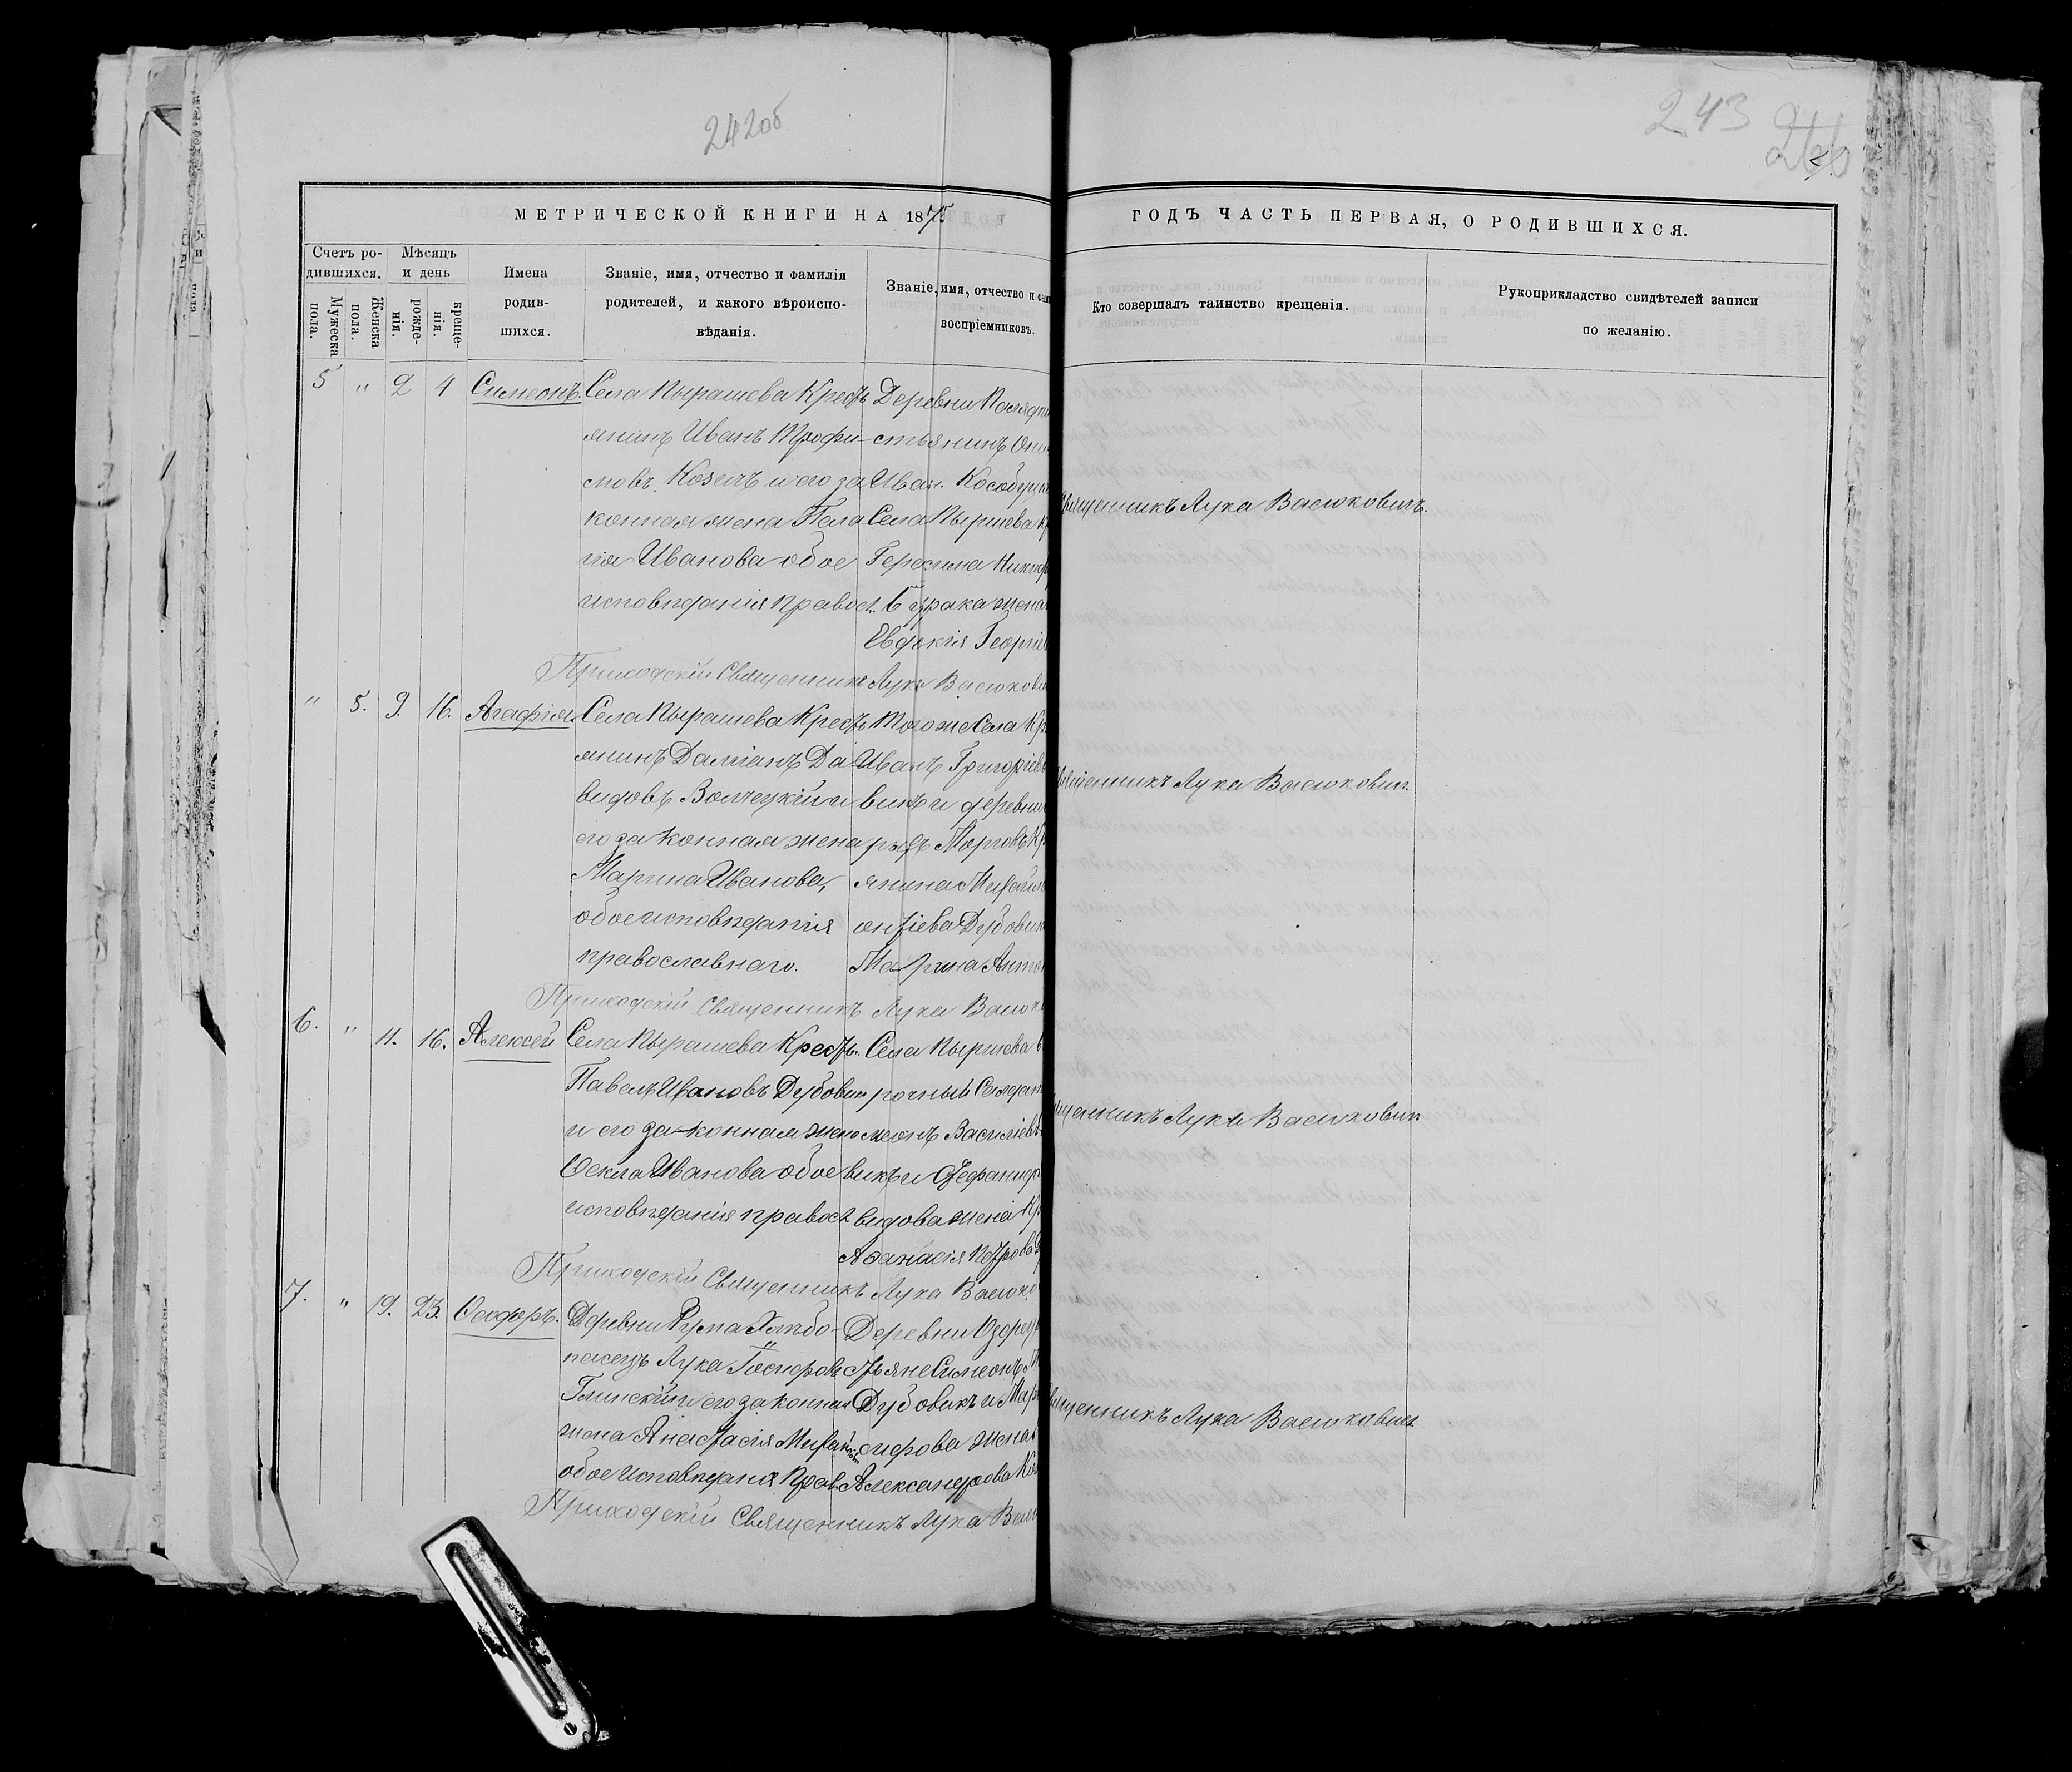 242об
243
МЕТРИЧЕСКОЙ КНИГИ НА 1875
ГОДЪ ЧАСТЬ ПЕРВАЯ, О РОДИВШИХСЯ.
Счетъ родившихся.
Мужеска пола.
Женска пола.
Мѣсяцъ и день
рожденія.
крещенія.
Имена
родив-
шихся.
Званіе, имя, отчество и фамилія
родителей, и какого вѣроиспо-
вѣданія.
Званіе, имя, отчество и фам
воспріемниковъ.
Кто совершалъ таинство крещенія.
Рукоприкладство свидѣтелей записи
по желанію.
5 " 2 4 Симеонъ.
Села Пырашева Кресть
янинъ Иванъ Трофи-
мовъ Козелъ и его за
конная жена Пела
гія Иванова обое
исповѣданія правос.
Деревни
стьянинъ
Иван. Кособуц
Села Пырашева
Герасима Никиф
Бурака жена
Евдокія Георгіев
Священникъ Лука Васюковичъ.
Приходскій Священникъ Лука Васюкови
" 5. 9. 16. Агафія.
Села Пырашева Кресть
янинъ Даміанъ Да
видовъ Волчецкій и
его законная жена
Марина Иванова,
обое исповѣданія
православнаго.
Того же Села Кр
Иванъ Григоріев
викъ и деревни
Морговъ Кр
янина Михаил
Дубовик
Марина Анто
Священникъ Лука Васюкович.
Приходскій Священникъ Лука Васюк
6. " 11. 16. Алексѣй
Села Пырашева Кресть.
Павелъ Ивановъ Дубовик
и его законная жена
Ѳекла Иванова обое
исповѣданія правос.
Села Пырашева б
рочный Солдат
меонъ Василіевъ
викъ и Стефанид
видова жена Кр
Аѳанасія Петрова
щенникъ Лука Васюкович
Приходскій Священникъ Лука Васюко
7. " 19. 23. Ѳеодоръ.
Деревни Рума Хлѣбо-
пашецъ Лука
Глинскій и его законная
жена Анастасія Михайлова
обое исповѣданія Прав.
Деревни Озере
стьяне Симеонъ
Дубовикъ и Мар
сифова жена
Александрова
щенникъ Лука Васюкович
Приходскій Священникъ Лука Васю